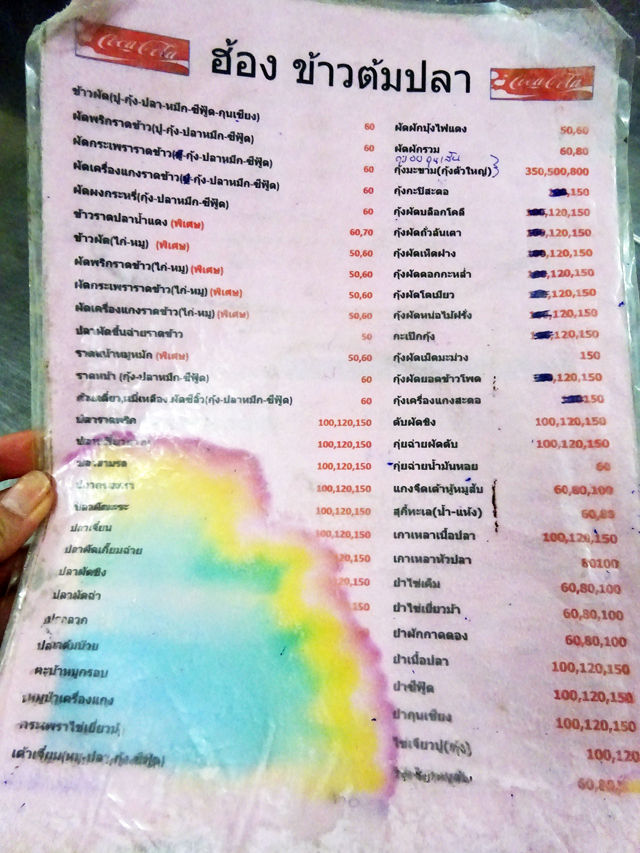 Coca-Cola
ฮ้อง ข้าวต้มปลา
Coca-Cola
ข้าวผัด(ปู-กุ้ง-ปลา-หมึก-ซีฟู๊ด-กุนเชียง) 60
ผัดพริกราดข้าว(ปู-กุ้ง-ปลาหมึก-ซีฟู๊ด) 60
ผัดกระเพราราดข้าว( -กุ้ง-ปลาหมึก-ซีฟู๊ด) 60
ผัดเครื่องแกงราดข้าว( -กุ้ง-ปลาหมึก-ซีฟู๊ด) 60
ผัดผงกระหรี่(กุ้ง-ปลาหมึก-ซีฟู๊ด) 60
ข้าวราดปลาน้ำแดง (พิเศษ) 60,70
ข้าวผัด(ไก่-หมู) (พิเศษ) 50,60
ผัดพริกราดข้าว(ไก่-หมู) (พิเศษ) 50,60
ผัดกระเพราราดข้าว(ไก่-หมู) (พิเศษ) 50,60
ผัดเครื่องแกงราดข้าว(ไก่-หมู) (พิเศษ) 50,60
ปลาผัดขึ้นฉ่ายราดข้าว 50
ราดหน้าหมูหมัก (พิเศษ) 50,60
ราดหน้า (กุ้ง-ปลาหมึก-ซีฟู๊ด) 60
ก๋วยเตี๋ยว,หมี่เหลือง ผัดซีอิ้ว(กุ้ง-ปลาหมึก-ซีฟู๊ด) 60
ปลาราดพริก 100,120,150
100,120,150
ปลาสามรส 100,120,150
100,120,150
ปลาผัดมะระ 100,120,150
ปลาเจี๋ยน 100,120,150
ปลาผัดเกี๊ยมฉ่าย 120,150
ปลาผัดขิง 120,150
ปลาผัดฉ่า 150
ปลาลวก
ปลาต้มบ๊วย
คะน้าหมูกรอบ
หมูป่าเครื่องแกง
กระเพราไข่เยี่ยวม้า
เต้าเจี้ยว(หมู-ปลา,กุ้ง-ซีฟู๊ด)
ผัดผักบุ้งไฟแดง 50,60
ผัดผักรวม 60,80
กุ้งมะขาม(กุ้งตัวใหญ่) 350,500,800
กุ้งกะปิสะตอ 150
กุ้งผัดบล็อกโคลี 120,150
กุ้งผัดถั่วลันเตา 120,150
กุ้งผัดเห็ดฟาง 120,150
กุ้งผัดดอกกะหล่ำ 120,150
กุ้งผัดโดเมียว 120,150
กุ้งผัดหน่อไม้ฝรั่ง 120,150
กะเป๊กกุ้ง 120,150
กุ้งผัดเม็ดมะม่วง 150
กุ้งผัดยอดข้าวโพด 120,150
กุ้งเครื่องแกงสะตอ 150
ตับผัดขิง 100,120,150
กุ่ยฉ่ายผัดตับ 100,120,150
กุ่ยฉ่ายน้ำมันหอย 60
แกงจืดเต้าหู้หมูสับ 60,80,100
สุกี้ทะเล(น้ำ-แห้ง) 60,80
เกาเหลาเนื้อปลา 100,120,150
เกาเหลาหัวปลา 80100
ยำไข่เค็ม 60,80,100
ยำไข่เยี่ยวม้า 60,80,100
ยำผักกาดดอง 60,80,100
ยำเนื้อปลา 100,120,150
ยำซีฟู๊ด 100,120,150
ยำกุนเชียง 100,120,150
ไข่เจียวปู(กุ้ง) 100,120
60,80,